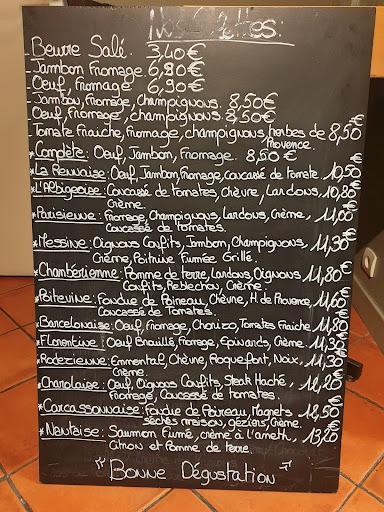 Nos Galettes:
- Beurre Salé. 3,40€
- Jambon Fromage 6,90€
- Oeuf, Fromage 6,90€
- Jambon, Fromage, Champignons. 8,50€
- Oeuf, Fromage, champignons. 8,50€
- Tomate Fraiche, Fromage, champignons, herbes de 8,50€
Provence.
*Complète: Oeuf, Jambon, Fromage. 8,50€
*La Rennaise: Oeuf, Jambon, Fromage, Concassé de tomate. 10,50€
*L'Albigeoise: Concassé de Tomates, Chèvre, Lardons, 10,80€
Crème.
*Parisienne: Fromage, Champignons, Lardons, Crème, 11,00€
Concassé de Tomates.
*Messine: Oignons Confits, Jambon, Champignons, 11,30€
Crème, Poitrine Fumée Grillé.
*Chambérienne: Pomme de terre, Lardons, Oignons 11,80€
Confits, Reblochon, Crème.
*Poitevine: Fondue de Poireau, Chèvre, H. de Provence, 11,60€
Concassé de Tomates.
*Barcelonaise: Oeuf, Fromage, Chorizo, Tomates Fraiche 11,80€
*Florentine: Oeuf Brouillé, Fromage, Epinards, Crème. 11,30€
*Rodezienne: Emmental, Chèvre, Roquefort, Noix, 11,30€
Crème.
*Charolaise: Oeuf, Oignons Confits, Steak Haché, 12,20€
Fromage, Concassé de Tomates.
*Carcassonnaise: Fondue de Poireau, Magrets 12,50€
séchés maison, géziers, Crème.
*Nantaise: Saumon Fumé, crème à l'aneth, 13,20€
Citron et Pomme de terre.
Bonne Dégustation